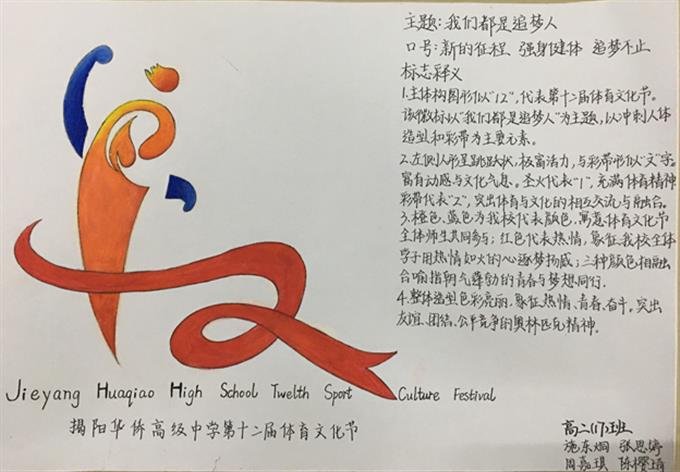 主题:我们都是追梦人
口号:新的征程、强身健体 追梦不止
标志释义
1.主体构图形似"12",代表第十二届体育文化节。
该徽标以"我们都是追梦人"为主题,以冲刺人体
造型和彩带为主要元素。
2.左侧人形呈跳跃状,极富活力,与彩带形似"文"字,
富有动感与文化气息。圣火代表"1",充满体育精神
彩带代表"2",突出体育与文化的相互交流与融合。
3.橙色、蓝色为我校代表颜色,寓意体育文化节
全体师生共同参与;红色代表热情,象征我校全体
学子用热情如火的心逐梦扬威;三种颜色相融
合喻指朝气蓬勃的青春与梦想同行.
4.整体造型色彩亮丽.象征热情、青春、奋斗。突出
友谊、团结、公平竞争的奥林匹克精神.
Jieyang Huaqiao High School Twelth Sport Culture Festival
揭阳华侨高级中学第十二届体育文化节
高二(17)班
施东烟 张思婷
周嘉琪 陈樱